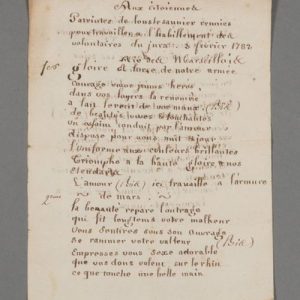 Aux citoiennes
Patriotes de lons le saunier reunies
pour travailler a l'habillement des
volontaires du jura. 8 fevrier 1792
Air des Marseillois
gloire et force de notre armée
courage vous jeunes heros
dans vos foyers la renommée
a fait le recit de vos maux (Bis)
de beautés jeunes et touchantes
un essaim conduit par l'amour
dispose pour vous nuit et jour
l'uniforme aux couleurs brillantes
triomphe a la haute gloire a nos
etendards
L'amour (Bis) ici travaille a l'armure
de mars
la beauté repare l'outrage
qui fit longtems votre malheur
vous sentirés sous son ouvrage
se ranimer votre valeur (Bis)
Empressés vous sexe adorable
que vos dons volent sur le rhin
ce que touche une belle main